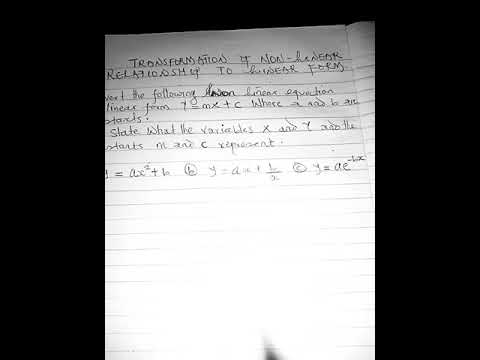 TRANSFORMATION OF NON-LINEAR
RELATIONSHIP TO LINEAR FORM
vert the following non linear equation
linear form Y = mx + c Where a and b are
stants.
State What the variables X and Y and the
stants m and c represent.
y = ax² + b (b) y = ax + b/x (c) y = ae^-bx